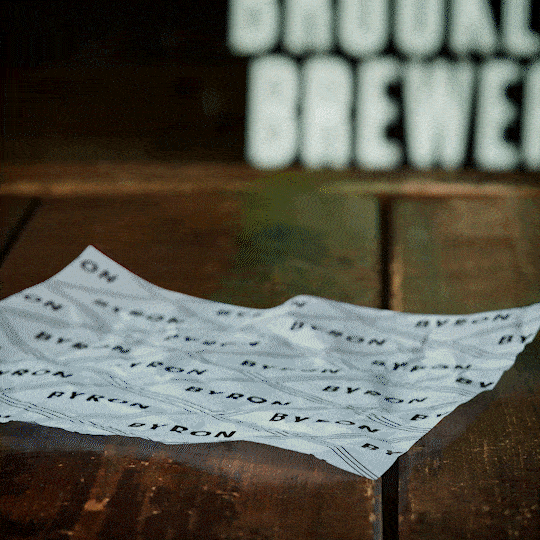 BROOKL
BREWE
ON
ON BYRON BYRON BYRON
BYRON BYRON BYRON BYRON
BYRON BYRON BYRON BYRON
BYRON BYRON BYRON BY
BYRON BYRON BY
BYRON BY